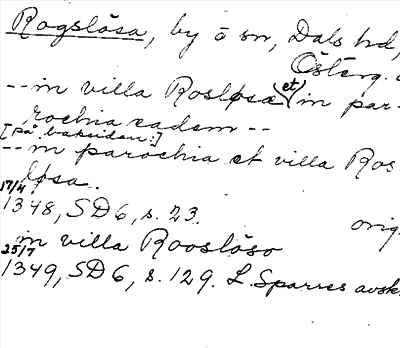 Rogslösa, by o sn, Dals hd,
Österg.
-- in villa Rosløsa et in par-
rochia eadem --
[på baksidan:]
-- in parochia et villa Ros-
løsa..
17/4
1348, SD6, s. 23. orig.
in villa Rooslöso
25/7
1349, SD6, s. 129. L Sparres avskr.